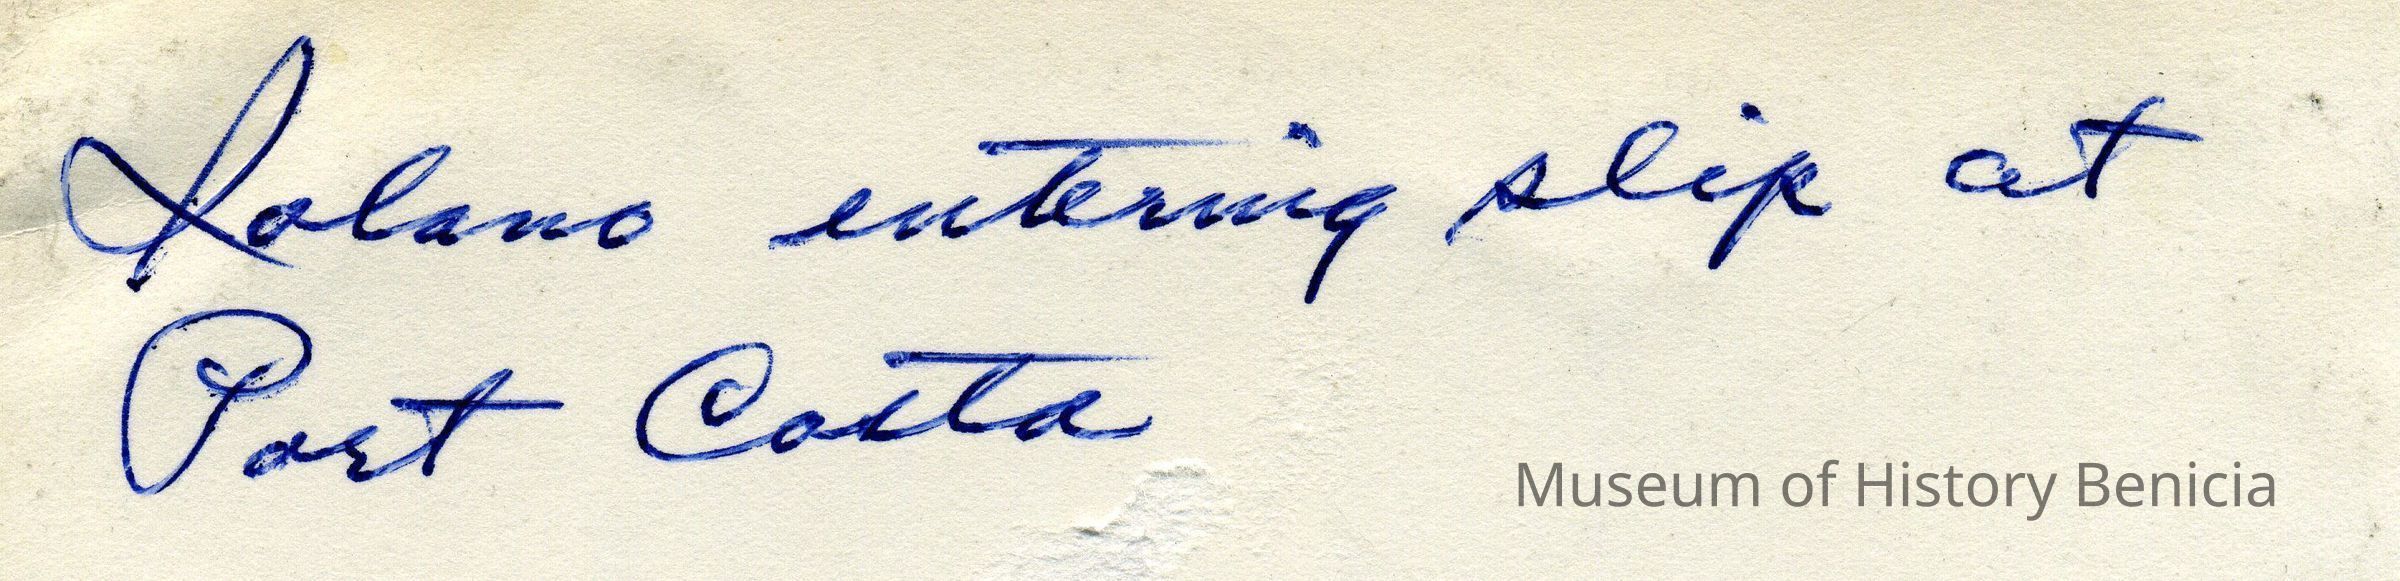 Solano entering slip at
Port Costa
Museum of History Benicia